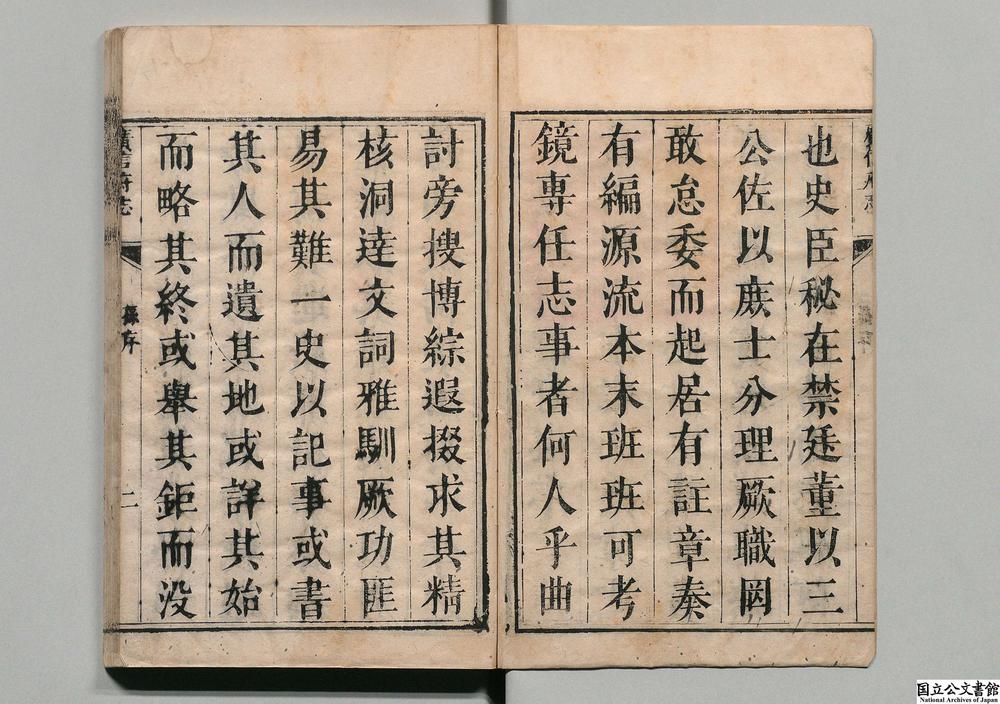 也史臣秘在禁廷董以三
公佐以庻士分理厥職罔
敢怠委而起居有註章奏
有編源流本末班班可考
鏡專任志事者何人乎曲
討旁搜博綜遐掇求其精
核洞達文詞雅馴厥功匪
易其難一史以記事或書
其人而遺其地或詳其始
而略其終或舉其鉅而没
廣信府志
二
国立公文書館
National Archives of Japan